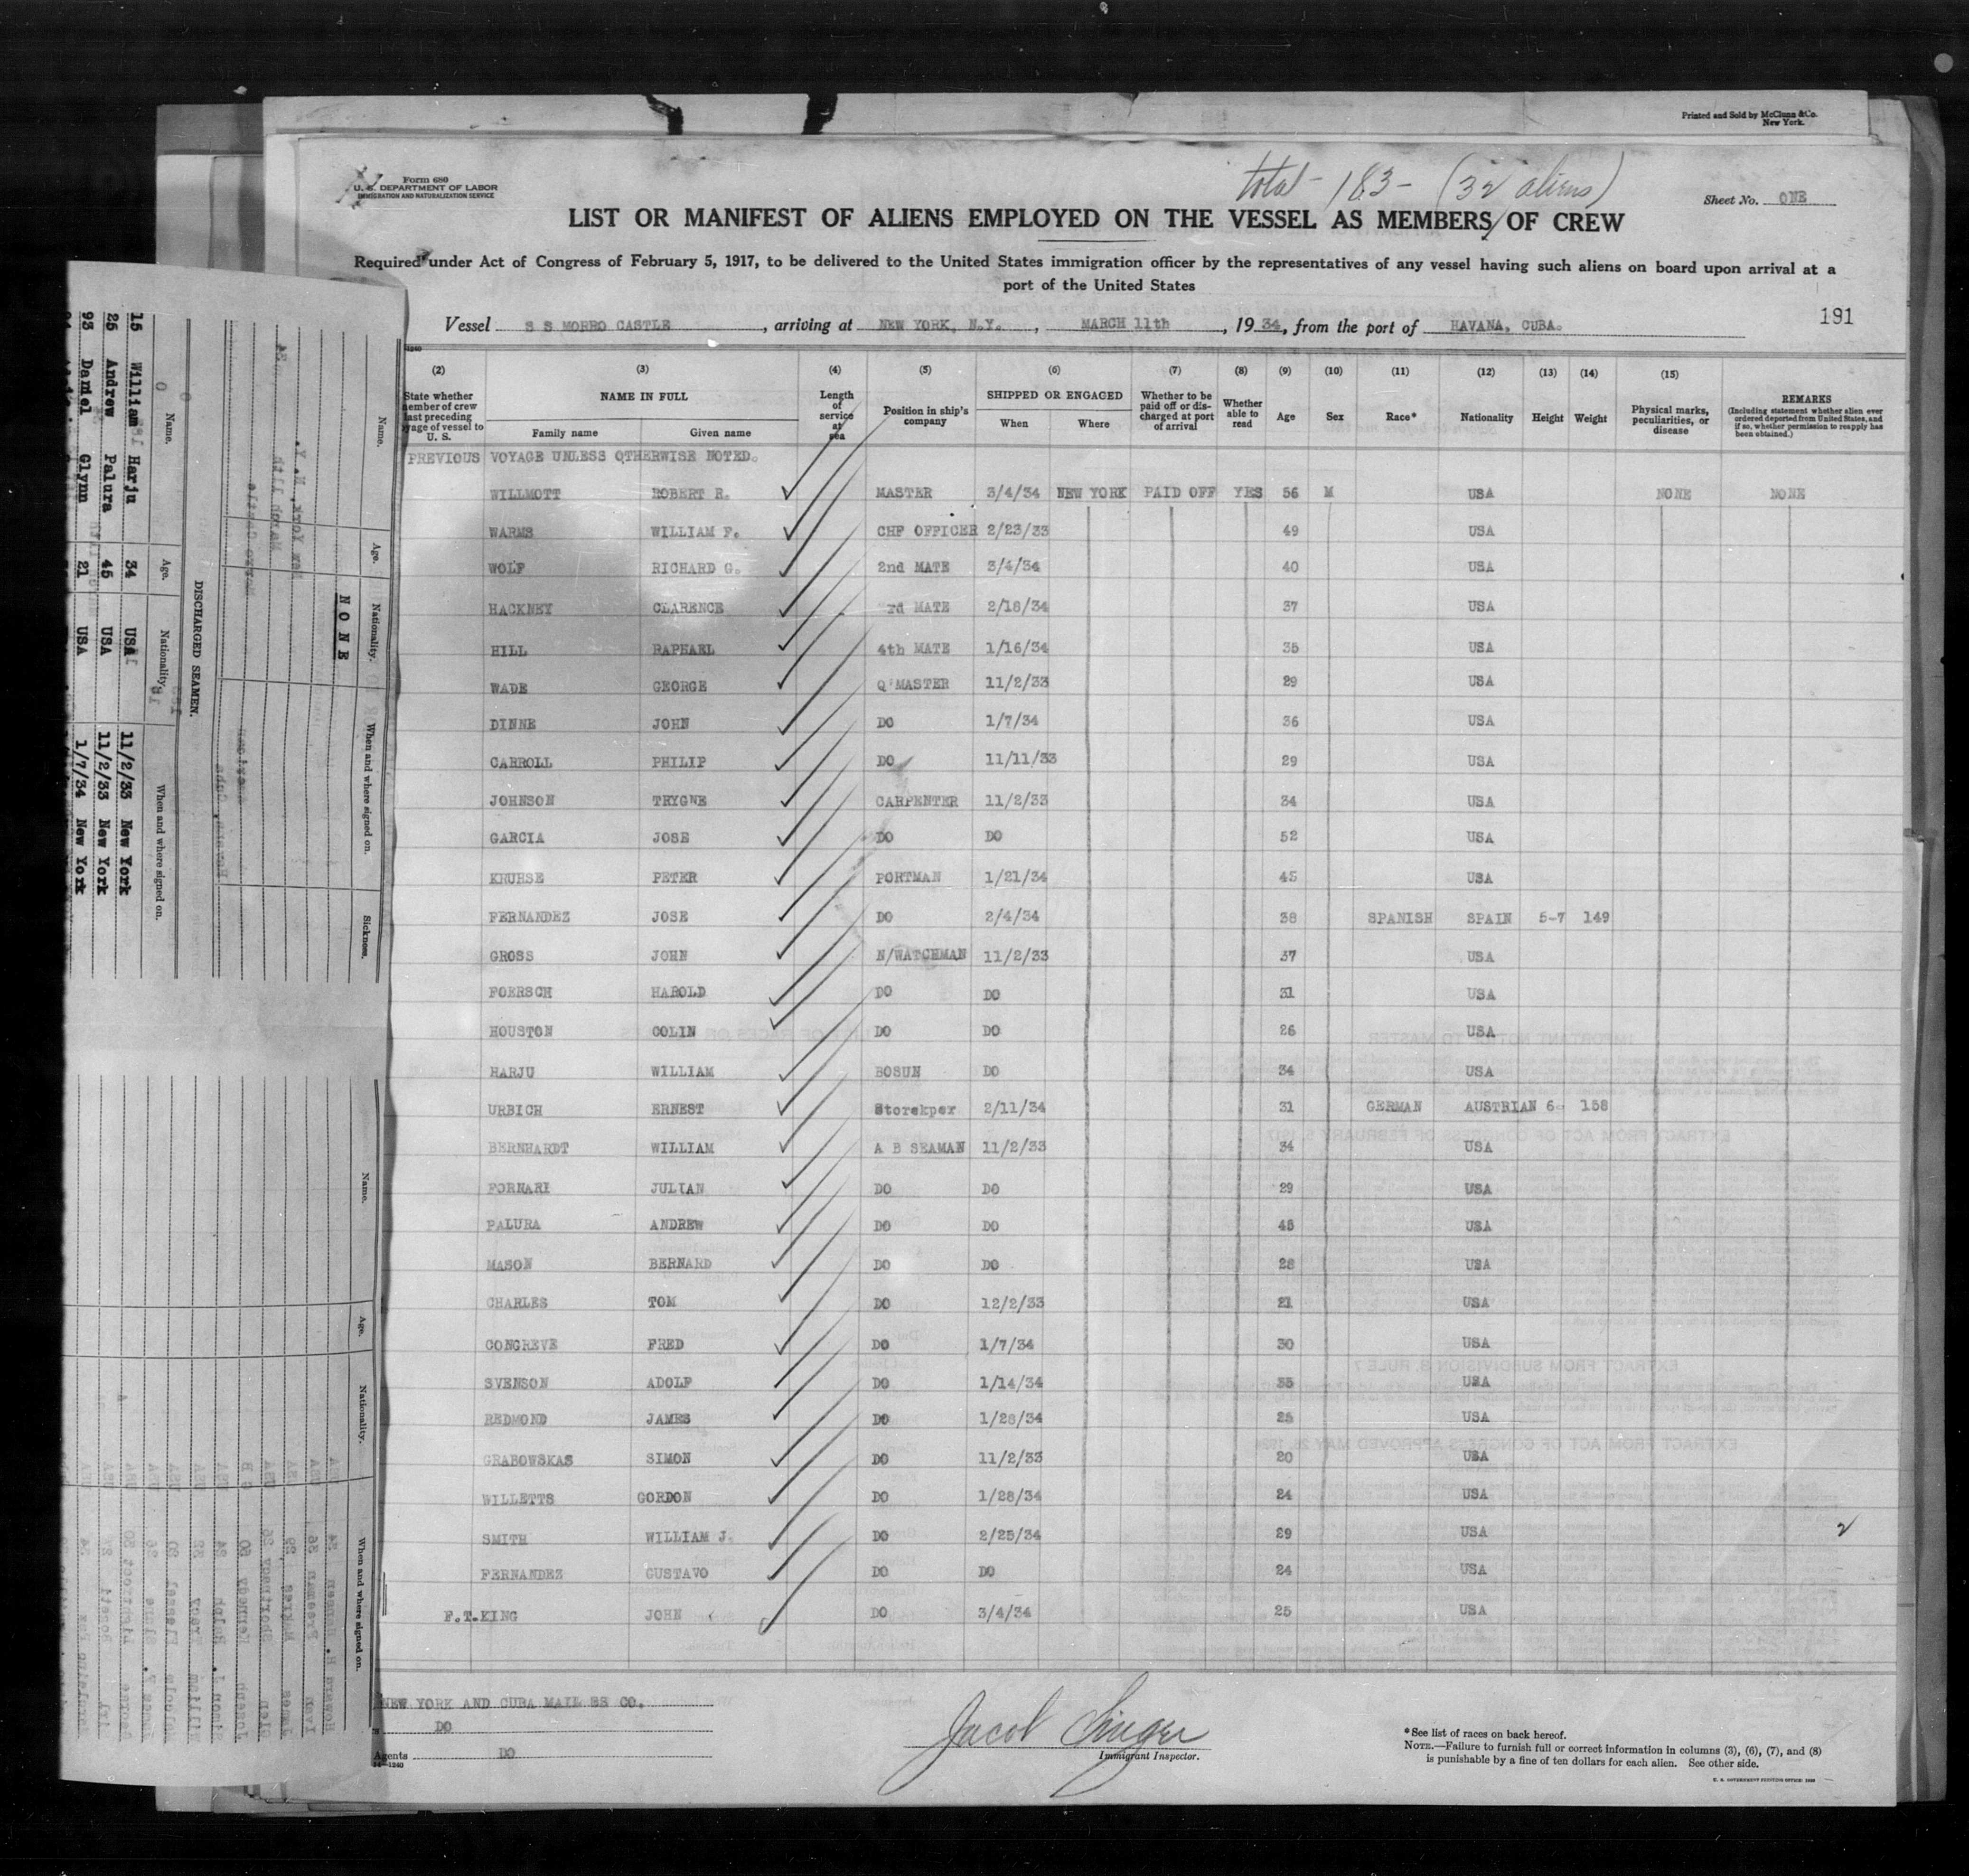 Printed and Sold by McClunn & Co.
New York.
Form 680
U. S. DEPARTMENT OF LABOR
IMMIGRATION AND NATURALIZATION SERVICE
total - 183 - (32 aliens)
Sheet No. ONE
LIST OR MANIFEST OF ALIENS EMPLOYED ON THE VESSEL AS MEMBERS OF CREW
Required under Act of Congress of February 5, 1917, to be delivered to the United States immigration officer by the representatives of any vessel having such aliens on board upon arrival at a
port of the United States
191
Vessel S S MORRO CASTLE, arriving at NEW YORK, N.Y., MARCH 11th, 1934, from the port of HAVANA, CUBA.
(2) (3) (4) (5) (6) (7) (8) (9) (10) (11) (12) (13) (14) (15)
State whether member of crew last preceding voyage of vessel to U. S.
NAME IN FULL
Family name Given name
Length of service at sea
Position in ship's company
SHIPPED OR ENGAGED
When Where
Whether to be paid off or discharged at port of arrival
Whether able to read
Age
Sex
Race*
Nationality
Height
Weight
Physical marks, peculiarities, or disease
REMARKS
(Including statement whether alien ever ordered deported from United States, and if so, whether permission to reapply has been obtained.)
PREVIOUS VOYAGE UNLESS OTHERWISE NOTED.
WILLMOTT ROBERT R. MASTER 3/4/34 NEW YORK PAID OFF YES 56 M USA NONE NONE
WARMS WILLIAM F. CHF OFFICER 2/23/33 49 USA
WOLF RICHARD G. 2nd MATE 3/4/34 40 USA
HACKNEY CLARENCE 3rd MATE 2/18/34 37 USA
HILL RAPHAEL 4th MATE 1/16/34 35 USA
WADE GEORGE Q'MASTER 11/2/33 29 USA
DINNE JOHN DO 1/7/34 36 USA
CARROLL PHILIP DO 11/11/33 29 USA
JOHNSON TRYGNE CARPENTER 11/2/33 34 USA
GARCIA JOSE DO DO 52 USA
KNUHSE PETER PORTMAN 1/21/34 45 USA
FERNANDEZ JOSE DO 2/4/34 38 SPANISH SPAIN 5-7 149
GROSS JOHN N/WATCHMAN 11/2/33 37 USA
FOERSCH HAROLD DO DO 31 USA
HOUSTON COLIN DO DO 26 USA
HARJU WILLIAM BOSUN DO 34 USA
URBICH ERNEST Storekper 2/11/34 31 GERMAN AUSTRIAN 6- 158
BERNHARDT WILLIAM A B SEAMAN 11/2/33 34 USA
FORNARI JULIAN DO DO 29 USA
PALURA ANDREW DO DO 45 USA
MASON BERNARD DO DO 28 USA
CHARLES TOM DO 12/2/33 21 USA
CONGREVE FRED DO 1/7/34 30 USA
SVENSON ADOLF DO 1/14/34 35 USA
REDMOND JAMES DO 1/28/34 25 USA
GRABOWSKAS SIMON DO 11/2/33 20 USA
WILLETTS GORDON DO 1/28/34 24 USA
SMITH WILLIAM J. DO 2/25/34 29 USA
FERNANDEZ GUSTAVO DO DO 24 USA
F.T.KING JOHN DO 3/4/34 25 USA
NEW YORK AND CUBA MAIL SS CO.
DO
Agents DO
Jacob Singer
Immigrant Inspector.
*See list of races on back hereof.
NOTE.—Failure to furnish full or correct information in columns (3), (6), (7), and (8)
is punishable by a fine of ten dollars for each alien. See other side.
Name. Age. Nationality. When and where signed on. Sickness.
NONE
DISCHARGED SEAMEN.
Name. Age. Nationality. When and where signed on.
15 William Harju 34 USA 11/2/33 New York
25 Andrew Palura 45 USA 11/2/33 New York
93 Daniel Glynn 21 USA 1/7/34 New York
Name. Age. Nationality. When and where signed on.